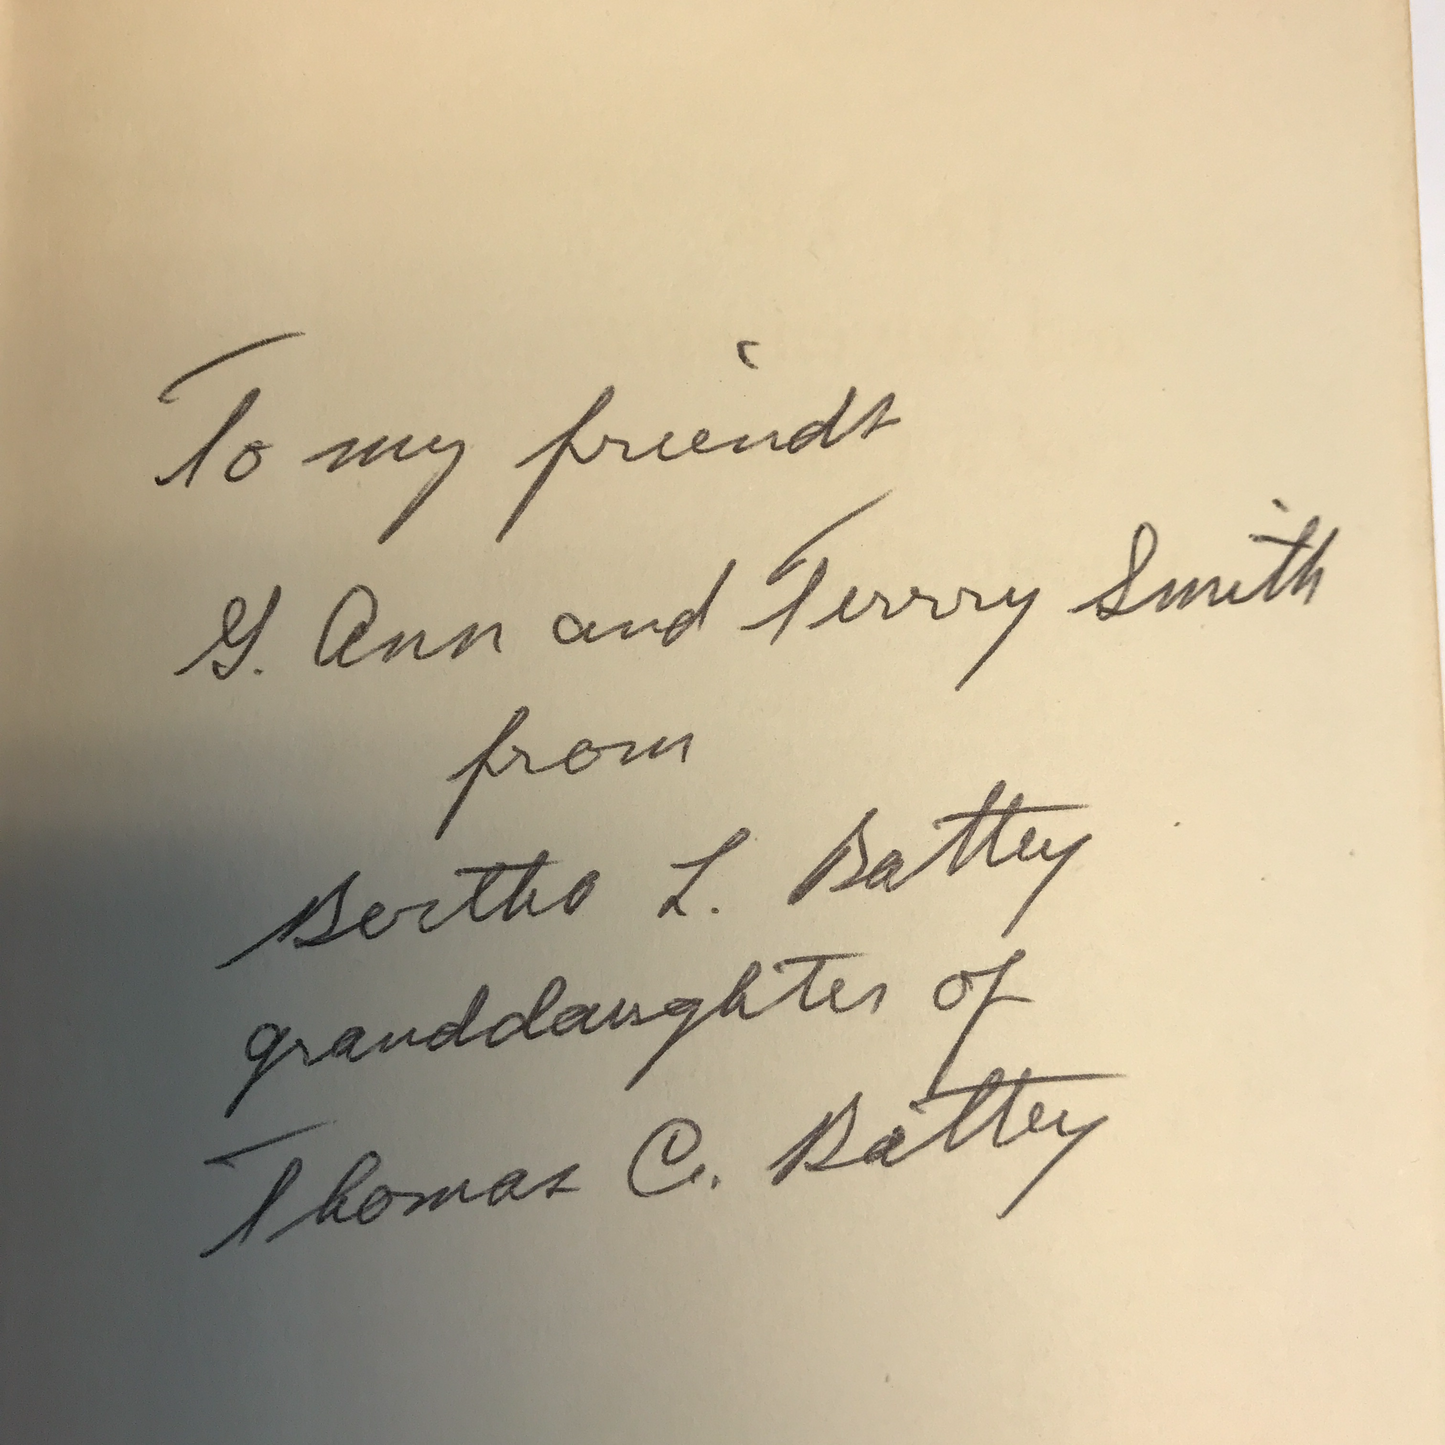 To my friends
G. Ann and Terry Smith
from
Bertha L. Battey
granddaughter of
Thomas C. Battey